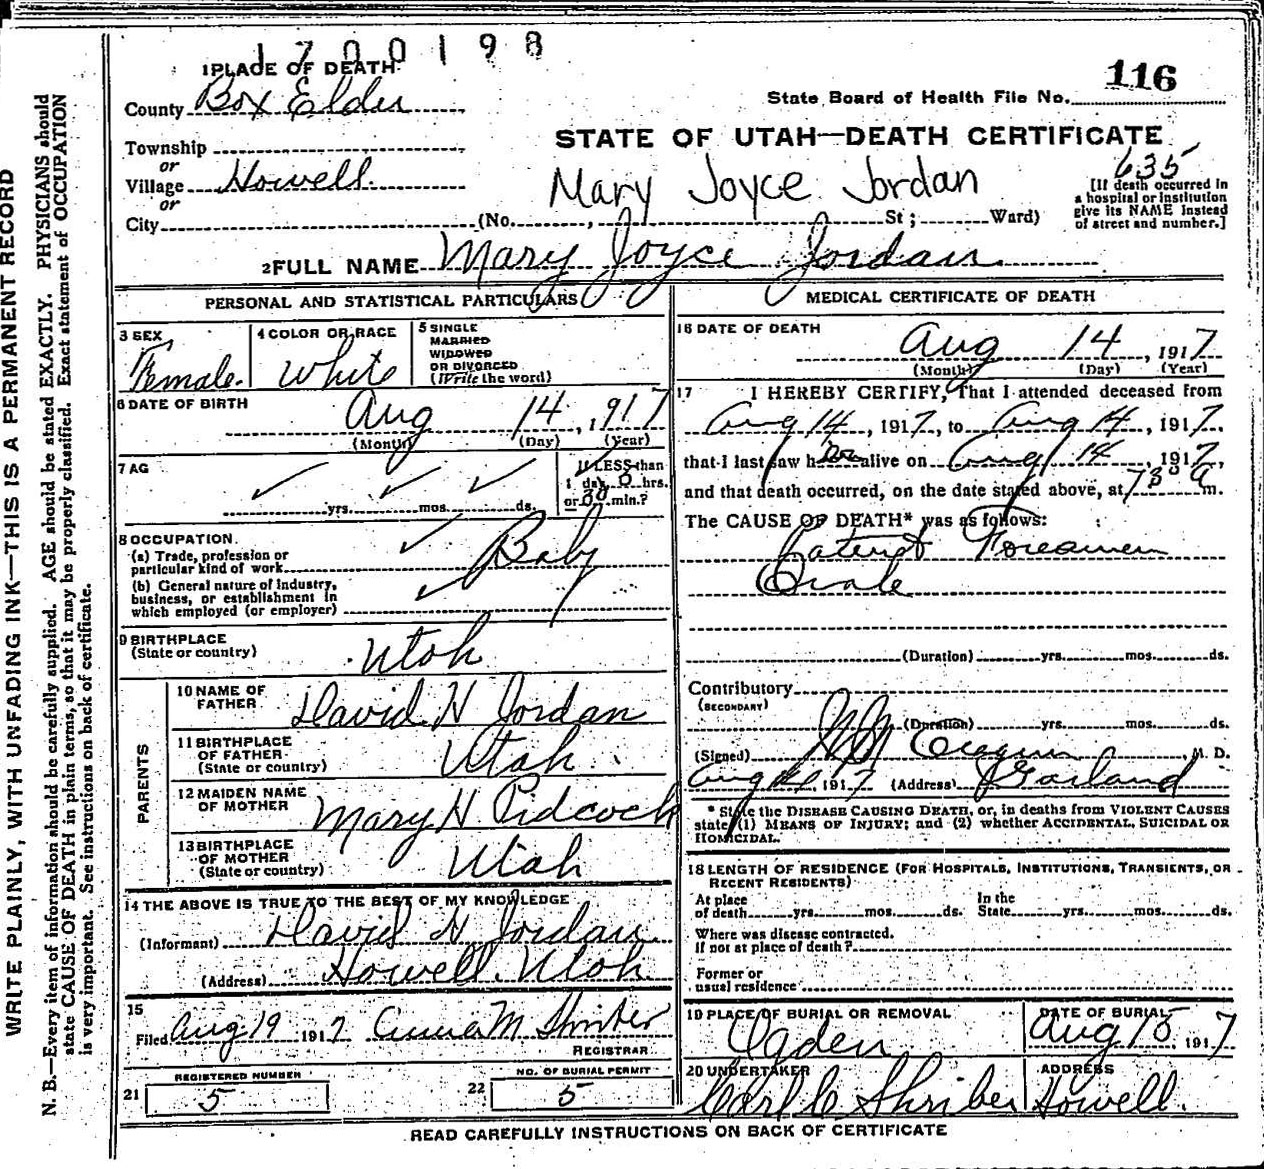 1700198
1 PLACE OF DEATH
116
County Box Elder
State Board of Health File No.
Township
STATE OF UTAH—DEATH CERTIFICATE
or
635
Village Howell
Mary Joyce Jordan
[If death occurred in
a hospital or institution
give its NAME instead
of street and number.]
or
City (No. , St; Ward)
2 FULL NAME Mary Joyce Jordan
PERSONAL AND STATISTICAL PARTICULARS
3 SEX
Female
4 COLOR OR RACE
White
5 SINGLE
MARRIED
WIDOWED
OR DIVORCED
(Write the word)
6 DATE OF BIRTH Aug 14, 1917
(Month) (Day) (Year)
7 AG
yrs. mos. ds.
If LESS than
1 day, 0 hrs.
or 30 min.?
8 OCCUPATION.
(a) Trade, profession or
particular kind of work Baby
(b) General nature of industry,
business, or establishment in
which employed (or employer)
9 BIRTHPLACE
(State or country) Utah
PARENTS
10 NAME OF
FATHER David H Jordan
11 BIRTHPLACE
OF FATHER
(State or country) Utah
12 MAIDEN NAME
OF MOTHER Mary H Pidcock
13 BIRTHPLACE
OF MOTHER
(State or country) Utah
14 THE ABOVE IS TRUE TO THE BEST OF MY KNOWLEDGE
(Informant) David H Jordan
(Address) Howell. Utah
15
Filed Aug 19 1917 M Shriber
REGISTRAR
REGISTERED NUMBER
21 5
NO. OF BURIAL PERMIT
22 5
MEDICAL CERTIFICATE OF DEATH
16 DATE OF DEATH
Aug 14, 1917
(Month) (Day) (Year)
17 I HEREBY CERTIFY, That I attended deceased from
Aug 14, 1917, to Aug 14, 1917,
that I last saw her alive on Aug 14, 1917,
and that death occurred, on the date stated above, at 7 30 a m.
The CAUSE OF DEATH* was as follows:
Foramen
Ovale
(Duration) yrs. mos. ds.
Contributory
(SECONDARY)
(Duration) yrs. mos. ds.
(Signed) M. D.
Aug 1917 (Address) Garland
* State the DISEASE CAUSING DEATH, or, in deaths from VIOLENT CAUSES
state (1) MEANS OF INJURY; and (2) whether ACCIDENTAL, SUICIDAL OR
HOMICIDAL.
18 LENGTH OF RESIDENCE (FOR HOSPITALS, INSTITUTIONS, TRANSIENTS, OR
RECENT RESIDENTS)
At place In the
of death yrs. mos. ds. State yrs. mos. ds.
Where was disease contracted.
If not at place of death?
Former or
usual residence
19 PLACE OF BURIAL OR REMOVAL
Ogden
DATE OF BURIAL
Aug 15 1917
20 UNDERTAKER
Carl C Shriber
ADDRESS
Howell.
READ CAREFULLY INSTRUCTIONS ON BACK OF CERTIFICATE
WRITE PLAINLY, WITH UNFADING INK—THIS IS A PERMANENT RECORD
N. B.—Every item of information should be carefully supplied. AGE should be stated EXACTLY. PHYSICIANS should
state CAUSE OF DEATH in plain terms, so that it may be properly classified. Exact statement of OCCUPATION
is very important. See instructions on back of certificate.